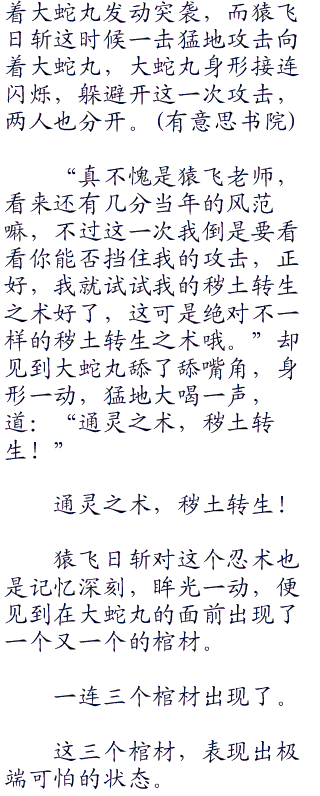 着大蛇丸发动突袭，而猿飞
日斩这时候一击猛地攻击向
着大蛇丸，大蛇丸身形接连
闪烁，躲避开这一次攻击，
两人也分开。(有意思书院)
“真不愧是猿飞老师，
看来还有几分当年的风范
嘛，不过这一次我倒是要看
看你能否挡住我的攻击，正
好，我就试试我的秽土转生
之术好了，这可是绝对不一
样的秽土转生之术哦。”却
见到大蛇丸舔了舔嘴角，身
形一动，猛地大喝一声，
道：“通灵之术，秽土转
生！”
通灵之术，秽土转生！
猿飞日斩对这个忍术也
是记忆深刻，眸光一动，便
见到在大蛇丸的面前出现了
一个又一个的棺材。
一连三个棺材出现了。
这三个棺材，表现出极
端可怕的状态。